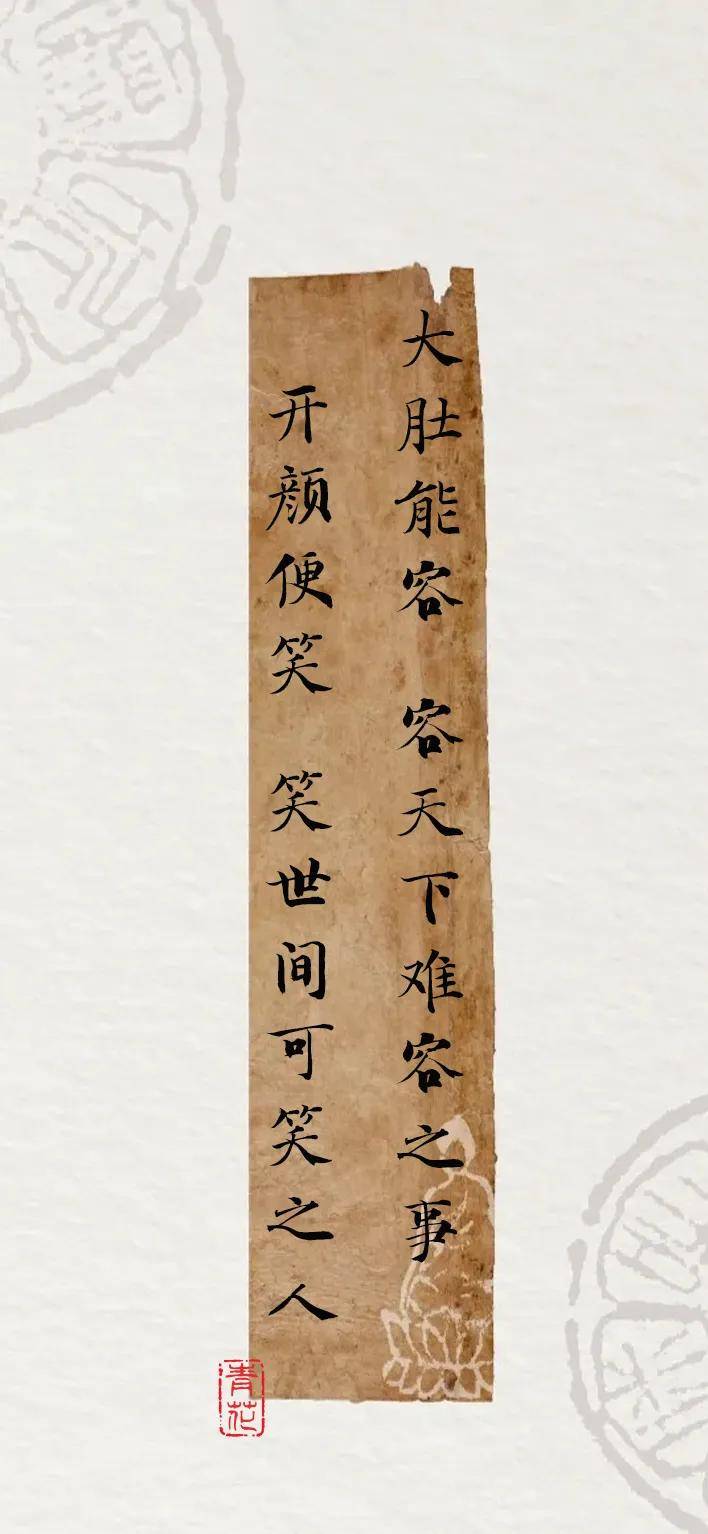 大肚能容 容天下难容之事
开颜便笑 笑世间可笑之人
青花